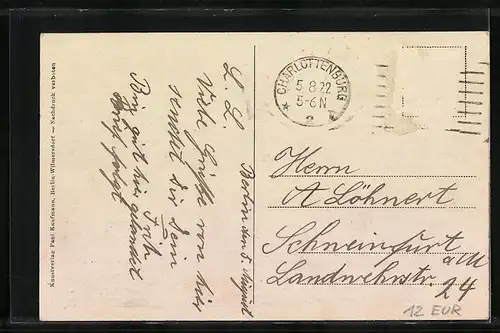 Kunstverlag Paul Kaufmann, Berlin-Wilmersdorf — Nachdruck verboten
CHARLOTTENBURG
5.8.22
5-6 N
* 2
Berlin den 5. August
L. L.
Viele Grüße von hier
sendet dir Dein
Fritz
Bin gut hier gelandet
Brief folgt
Herrn
A Löhnert
Schweinfurt a/M
Landwehrstr. 24
12 EUR